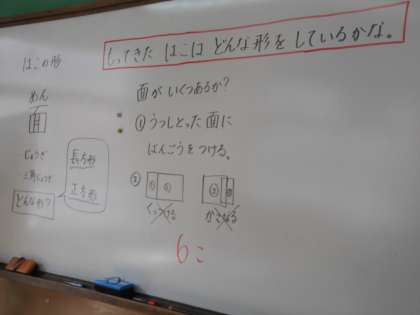 もってきた はこは どんな形を しているかな。
はこの形
めん
面が いくつあるか?
①うつしとった 面に
ばんごうをつける。
じょうぎ
三角じょうぎ
どんな形?
長方形
正方形
②
① ②
くっつける
かさなる
6こ